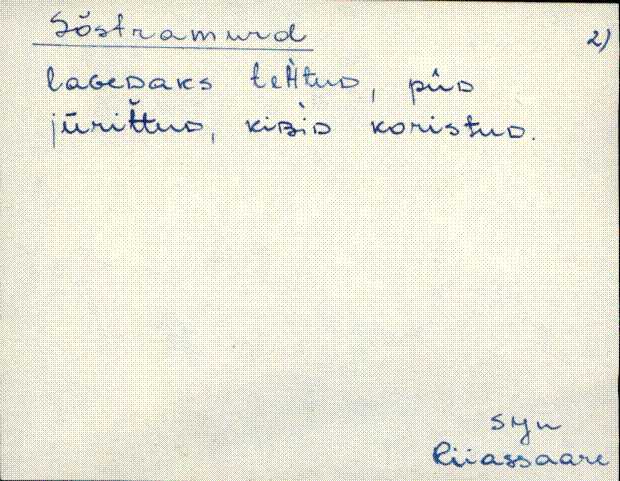 Sõstramurd
2)
lageDaks teHtuD, pûD
jūriťtuD, kiʙ̀iD koristuD.
SJn
Riiassaare